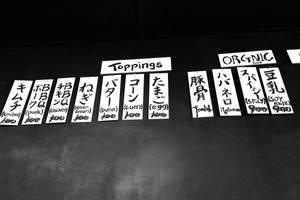 Toppings
ORGNIC
キムチ
(kimchi)
100
BBQ
ポーク
(pork)
100
BBQ
チキン
(chicken)
100
ねぎ
100
バター
(butter)
100
コーン
(corn)
100
たまご
(egg)
100
豚骨
ハバネロ
スパーイシー
(spicy)
豆乳
(SOY
MILK)